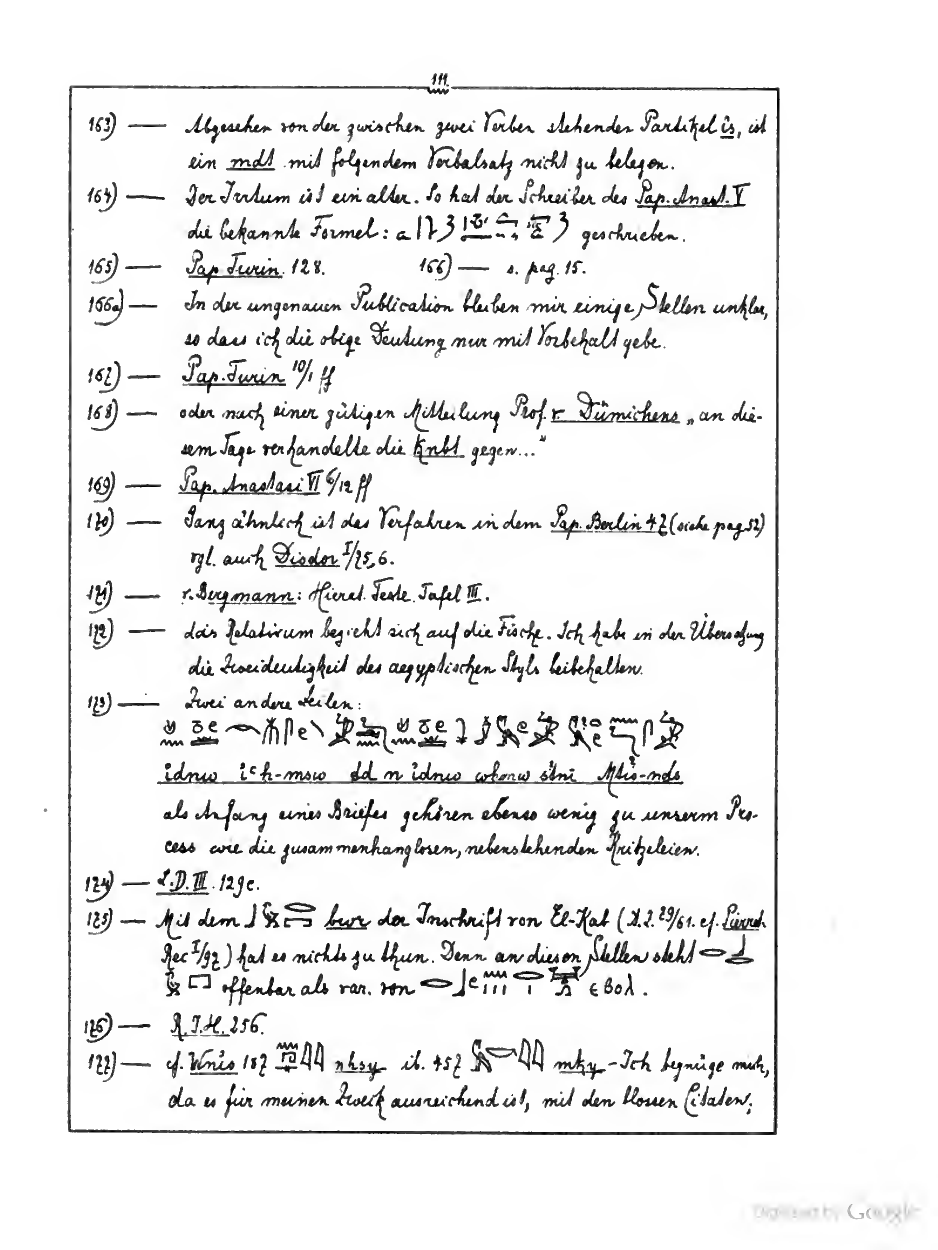 111.
163) — Abgesehen von der zwischen zwei Verben stehenden Partikel is, ist
ein mdt mit folgendem Verbalsatz nicht zu belegen.
164) — Der Irrtum ist ein alter. So hat der Schreiber des Pap. Anast. V
die bekannte Formel: geschrieben.
165) — Pap Turin 128. 166) — s. pag. 15.
166a) — In der ungenauen Publication bleiben mir einige Stellen unklar,
so dass ich die obige Deutung nur mit Vorbehalt gebe.
167) — Pap. Turin 10/1 ff
168) — oder nach einer gütigen Mitteilung Prof. v. Dümichens „an die-
sem Tage verhandelte die Knbt gegen..."
169) — Pap. Anastasi VI 6/12 ff
170) — Ganz ähnlich ist das Verfahren in dem Pap. Berlin 47 (siehe pag 52)
vgl. auch Diodor I/75,6.
171) — v. Bergmann: Hierat. Texte. Tafel III.
172) — das Relativum bezieht sich auf die Fische. Ich habe in der Übersetzung
die Zweideutigkeit des aegyptischen Styls beibehalten.
173) — Zwei andere Zeilen:
idnw iꜥh-msw dd n idnw
als Anfang eines Briefes gehören ebenso wenig zu unserm Pro-
cess wie die zusammenhanglosen, nebenstehenden Kritzeleien.
174) — L.D. III. 129c.
175) — Mit dem bwr der Inschrift von El-Kab (Ä.Z. 29/61. cf. Pierret
Rec I/97) hat es nichts zu thun. Denn an diesen Stellen steht
offenbar als var. von ⲉⲃⲟⲗ.
176) — R.I.H. 256.
177) — cf. Wnis 187 nhsy ib. 457 mky – Ich begnüge mich,
da es für meinen Zweck ausreichend ist, mit den blossen Citaten;
Digitized by Google